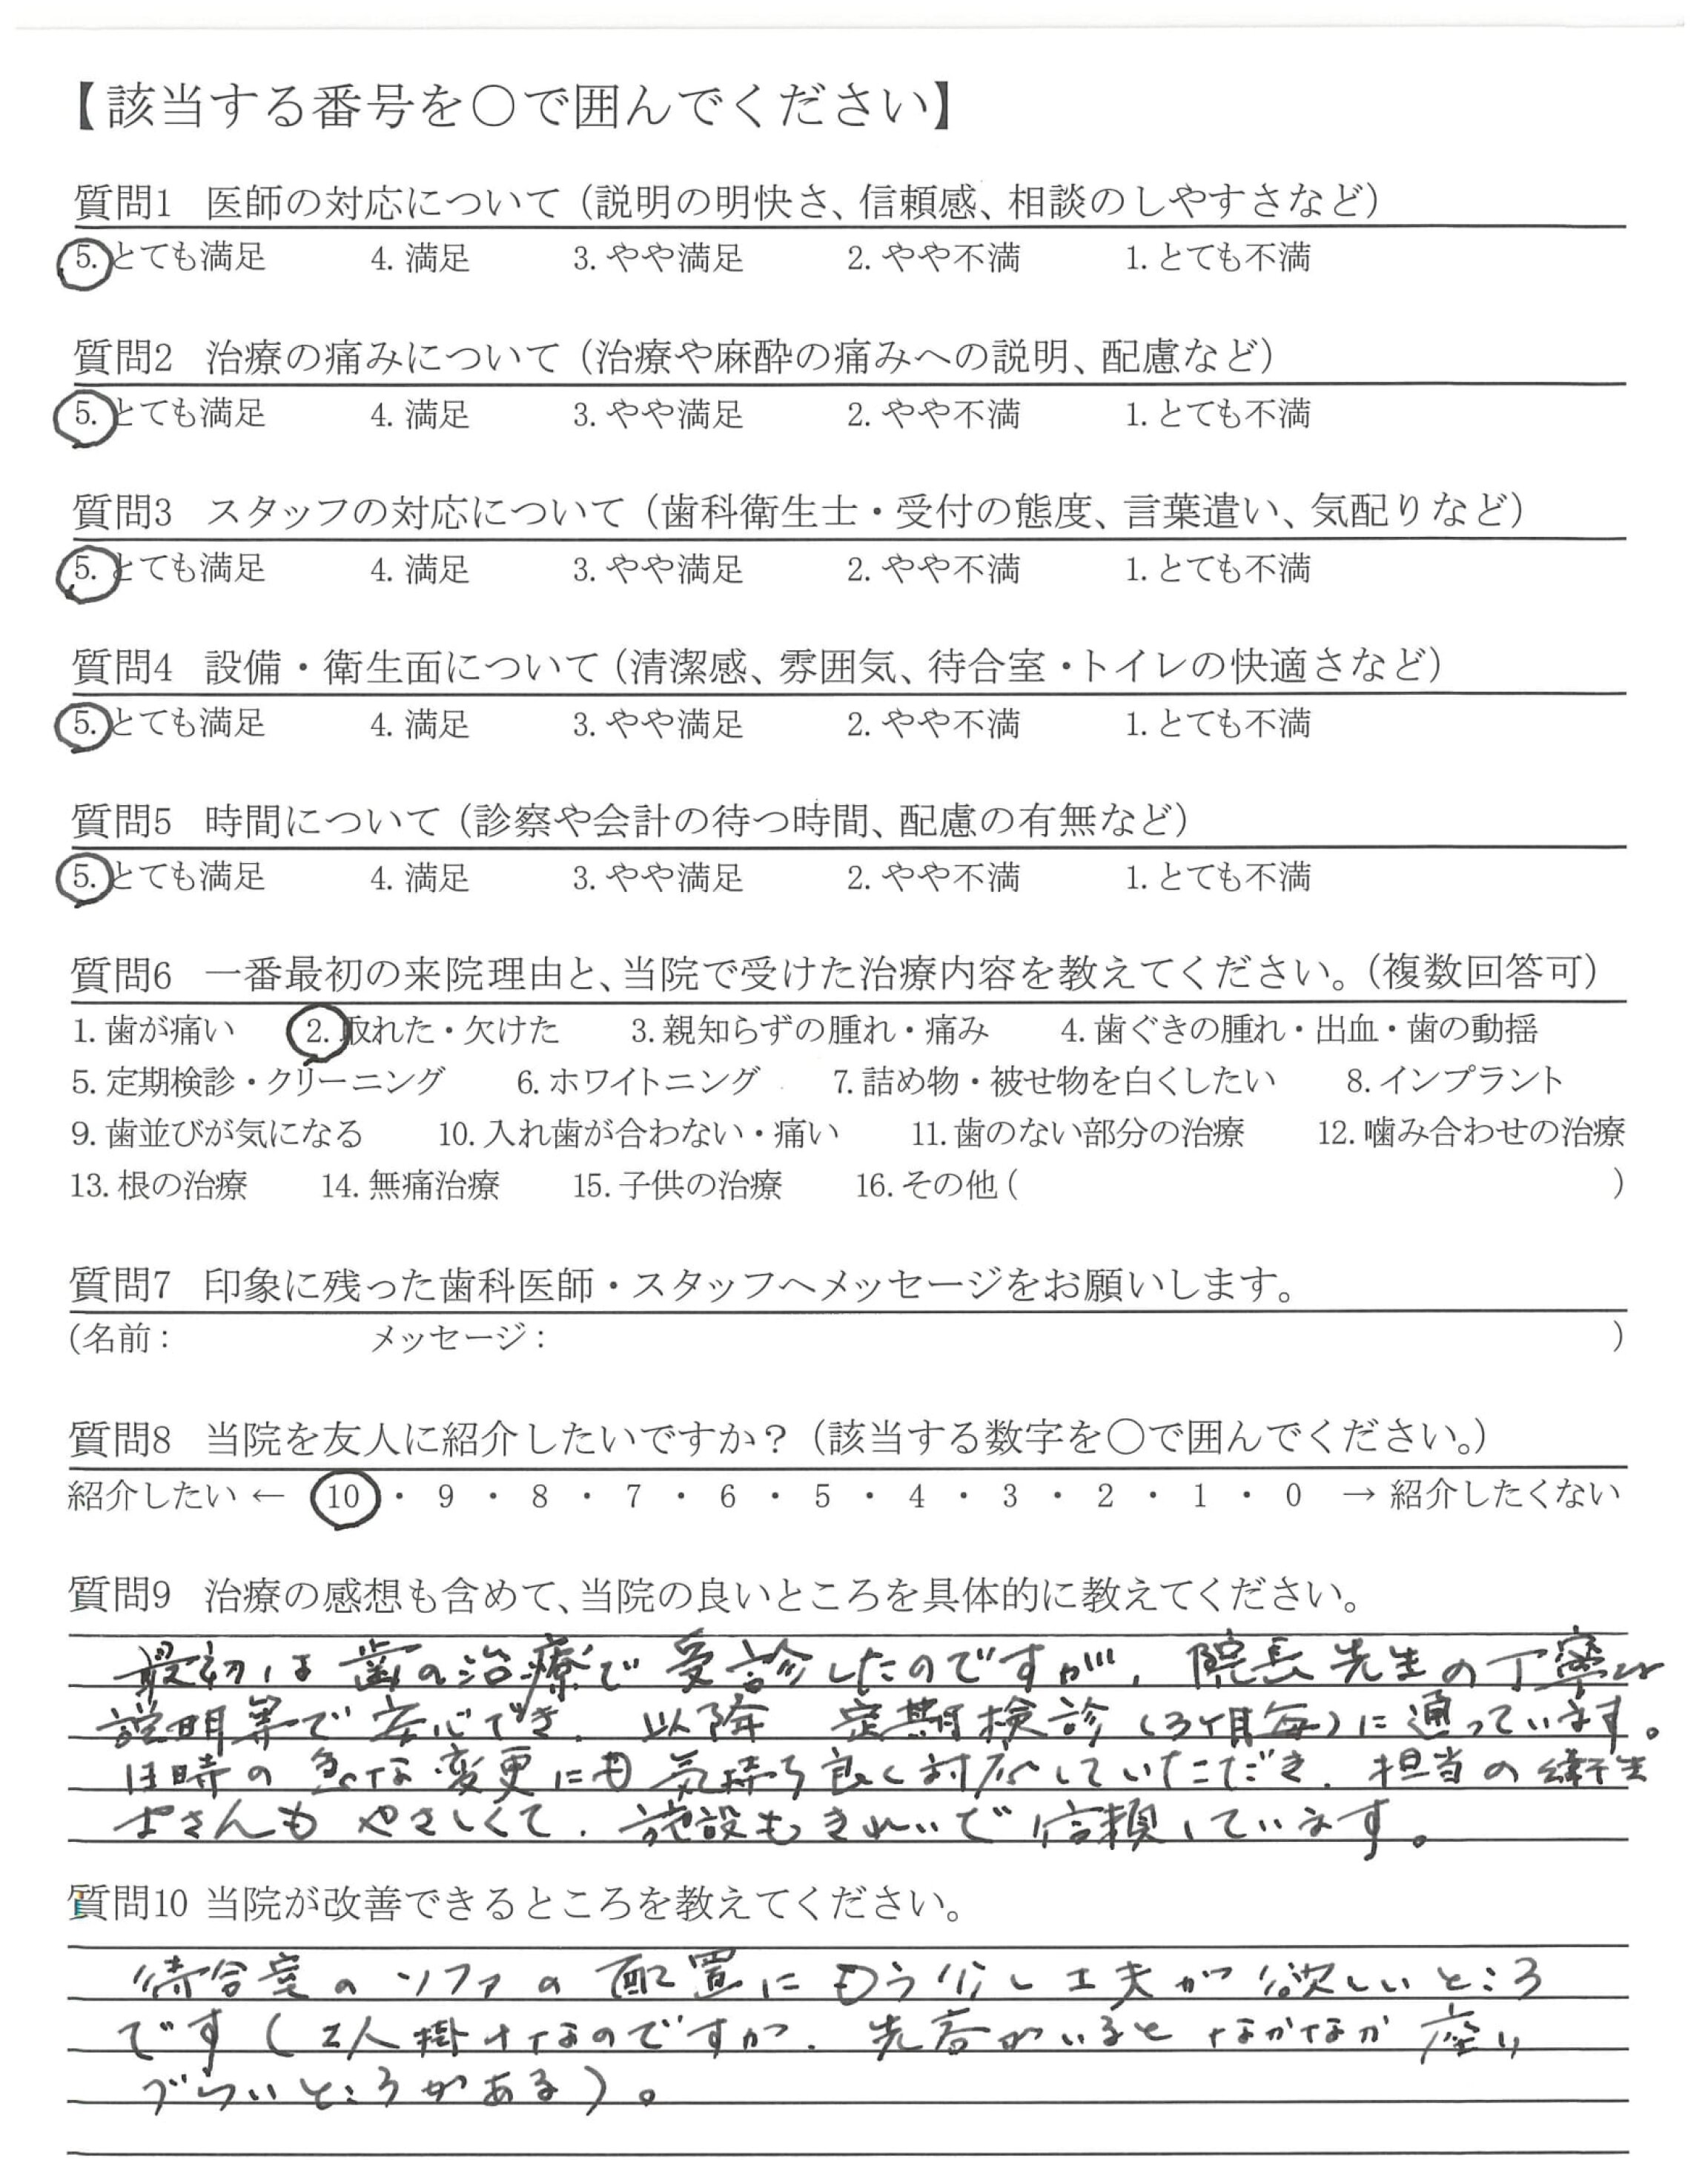 【該当する番号を○で囲んでください】
質問1 医師の対応について（説明の明快さ、信頼感、相談のしやすさなど）
5. とても満足 4. 満足 3. やや満足 2. やや不満 1. とても不満
質問2 治療の痛みについて（治療や麻酔の痛みへの説明、配慮など）
5. とても満足 4. 満足 3. やや満足 2. やや不満 1. とても不満
質問3 スタッフの対応について（歯科衛生士・受付の態度、言葉遣い、気配りなど）
5. とても満足 4. 満足 3. やや満足 2. やや不満 1. とても不満
質問4 設備・衛生面について（清潔感、雰囲気、待合室・トイレの快適さなど）
5. とても満足 4. 満足 3. やや満足 2. やや不満 1. とても不満
質問5 時間について（診察や会計の待つ時間、配慮の有無など）
5. とても満足 4. 満足 3. やや満足 2. やや不満 1. とても不満
質問6 一番最初の来院理由と、当院で受けた治療内容を教えてください。（複数回答可）
1. 歯が痛い 2. 取れた・欠けた 3. 親知らずの腫れ・痛み 4. 歯ぐきの腫れ・出血・歯の動揺
5. 定期検診・クリーニング 6. ホワイトニング 7. 詰め物・被せ物を白くしたい 8. インプラント
9. 歯並びが気になる 10. 入れ歯が合わない・痛い 11. 歯のない部分の治療 12. 噛み合わせの治療
13. 根の治療 14. 無痛治療 15. 子供の治療 16. その他 ( )
質問7 印象に残った歯科医師・スタッフへメッセージをお願いします。
(名前： メッセージ： )
質問8 当院を友人に紹介したいですか？（該当する数字を○で囲んでください。）
紹介したい ← 10 ・ 9 ・ 8 ・ 7 ・ 6 ・ 5 ・ 4 ・ 3 ・ 2 ・ 1 ・ 0 → 紹介したくない
質問9 治療の感想も含めて、当院の良いところを具体的に教えてください。
最初は歯の治療で受診したのですが、院長先生の丁寧な
説明等で安心でき、以降 定期検診（3ケ月毎）に通っています。
日時の急な変更にも気持ち良く対応していただき、担当の衛生
士さんもやさしくて、施設もきれいで信頼しています。
質問10 当院が改善できるところを教えてください。
待合室のソファの配置にもう少し工夫が欲しいところ
です（2人掛けなのですが、先客がいるとなかなか座り
づらいところがある）。